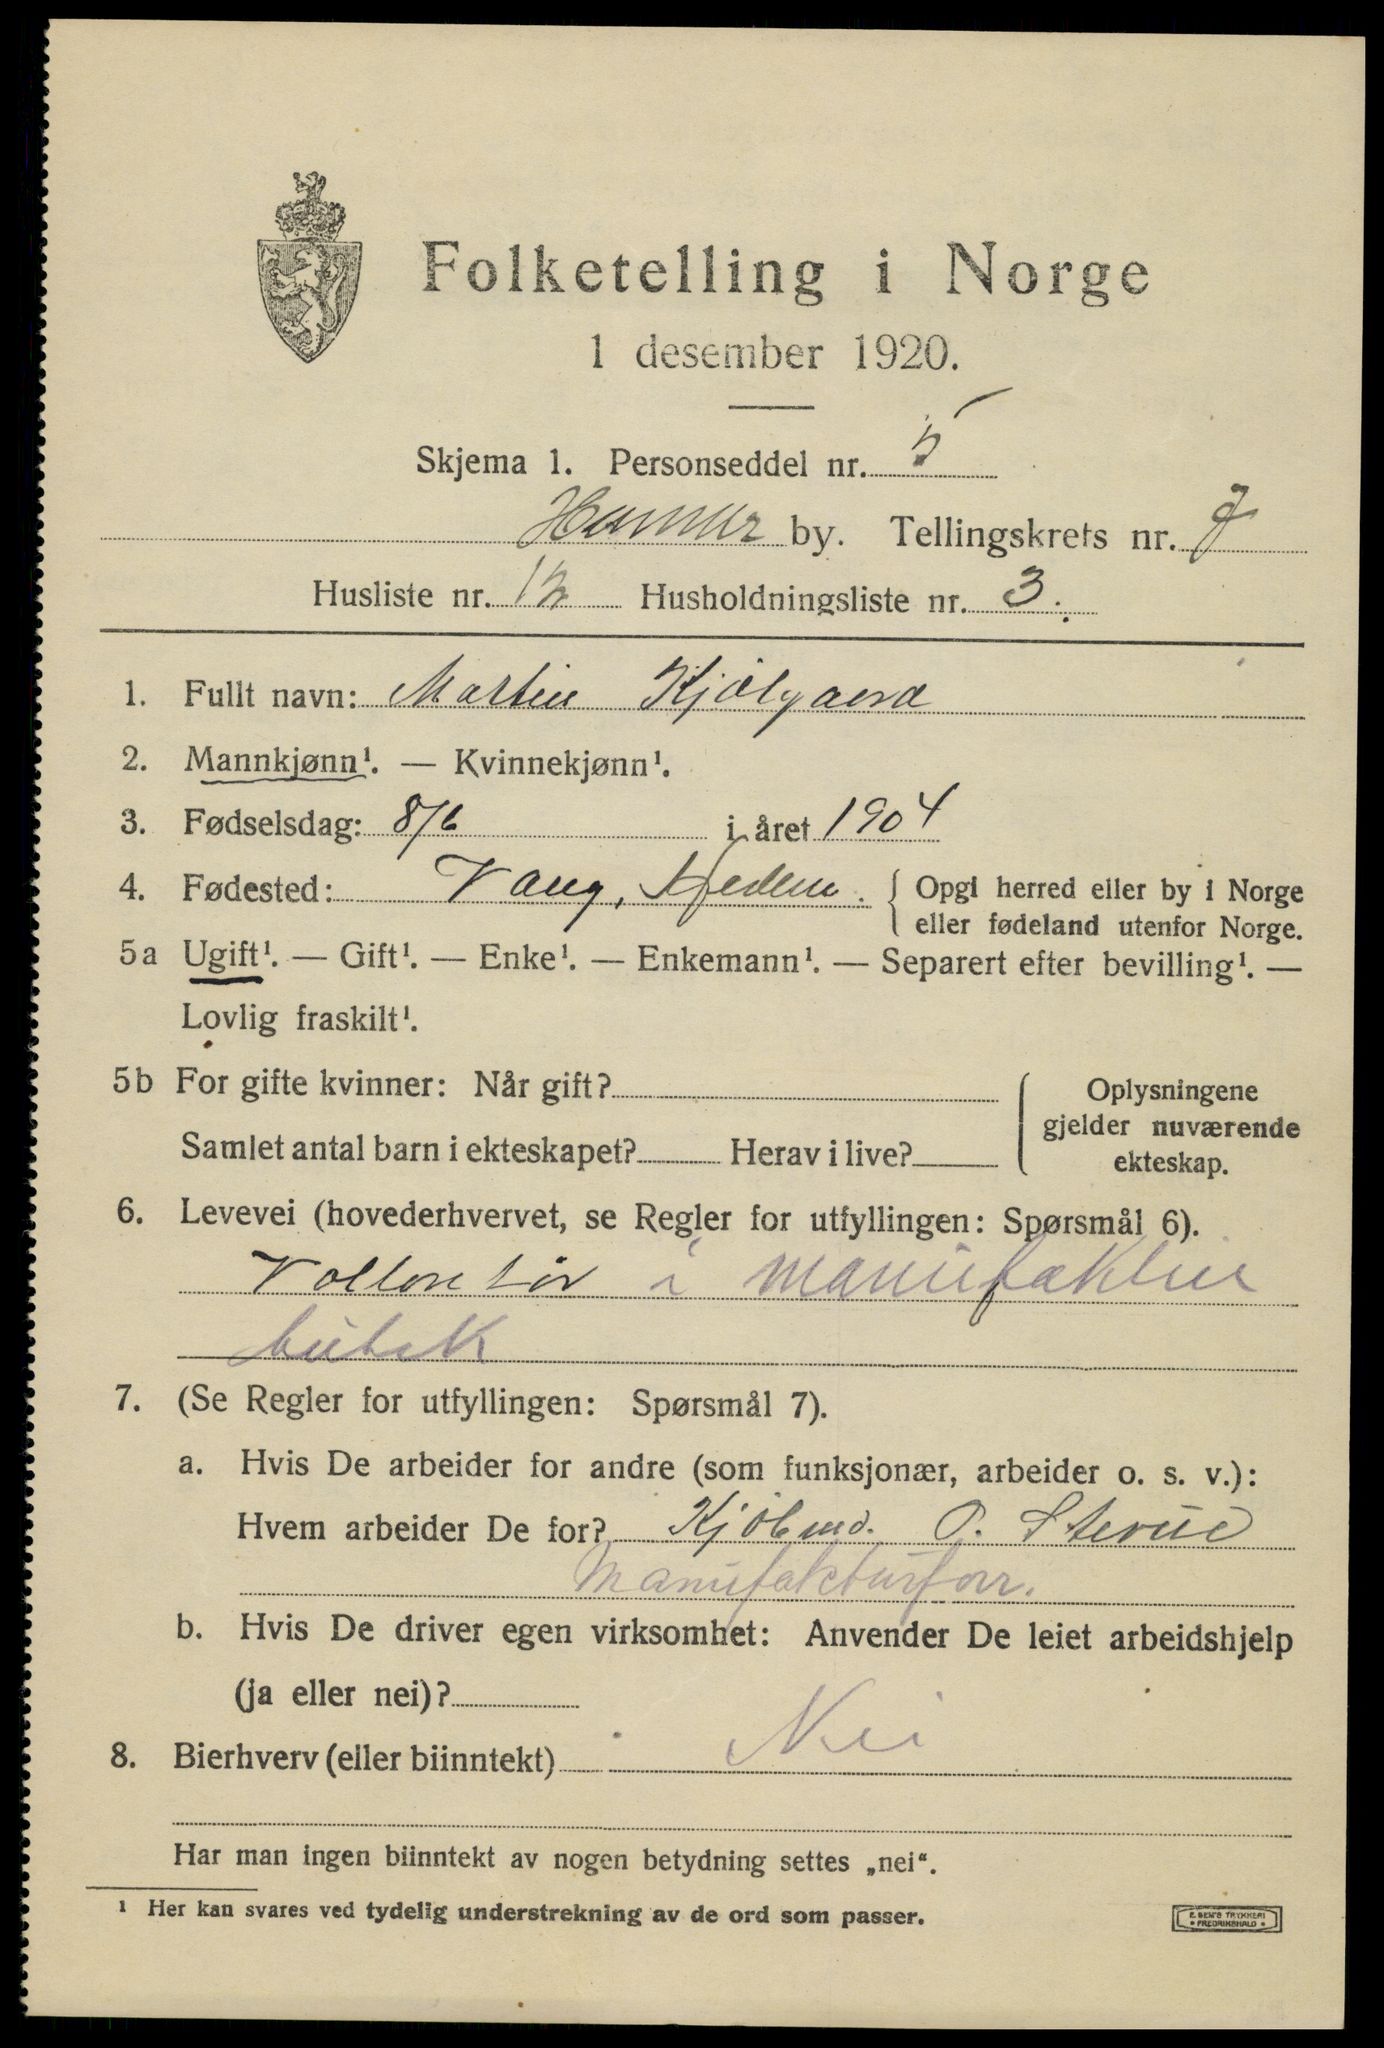 Folketelling i Norge
1 desember 1920.
Skjema 1. Personseddel nr. 5
Hamar by. Tellingskrets nr. 7
Husliste nr. 12 Husholdningsliste nr. 3.
1. Fullt navn: Martin Kjølgaard
2. Mannkjønn¹. — Kvinnekjønn¹.
3. Fødselsdag: 8/6 i året 1904
4. Fødested: Vang, Hedem. { Opgi herred eller by i Norge
eller fødeland utenfor Norge.
5a Ugift¹. — Gift¹. — Enke¹. — Enkemann¹. — Separert efter bevilling¹. —
Lovlig fraskilt¹.
5b For gifte kvinner: Når gift? Oplysningene
gjelder nuværende
Samlet antal barn i ekteskapet? Herav i live? ekteskap.
6. Levevei (hovederhvervet, se Regler for utfyllingen: Spørsmål 6).
Vollontør i manufaktur
butik
7. (Se Regler for utfyllingen: Spørsmål 7).
a. Hvis De arbeider for andre (som funksjonær, arbeider o. s. v.):
Hvem arbeider De for? Kjøbmd. O.
Manufakturforr.
b. Hvis De driver egen virksomhet: Anvender De leiet arbeidshjelp
(ja eller nei)?
8. Bierhverv (eller biinntekt) Nei
Har man ingen biinntekt av nogen betydning settes „nei“.
¹ Her kan svares ved tydelig understrekning av de ord som passer.
E. SEM'S TRYKKERI
• FREDRIKSHALD •